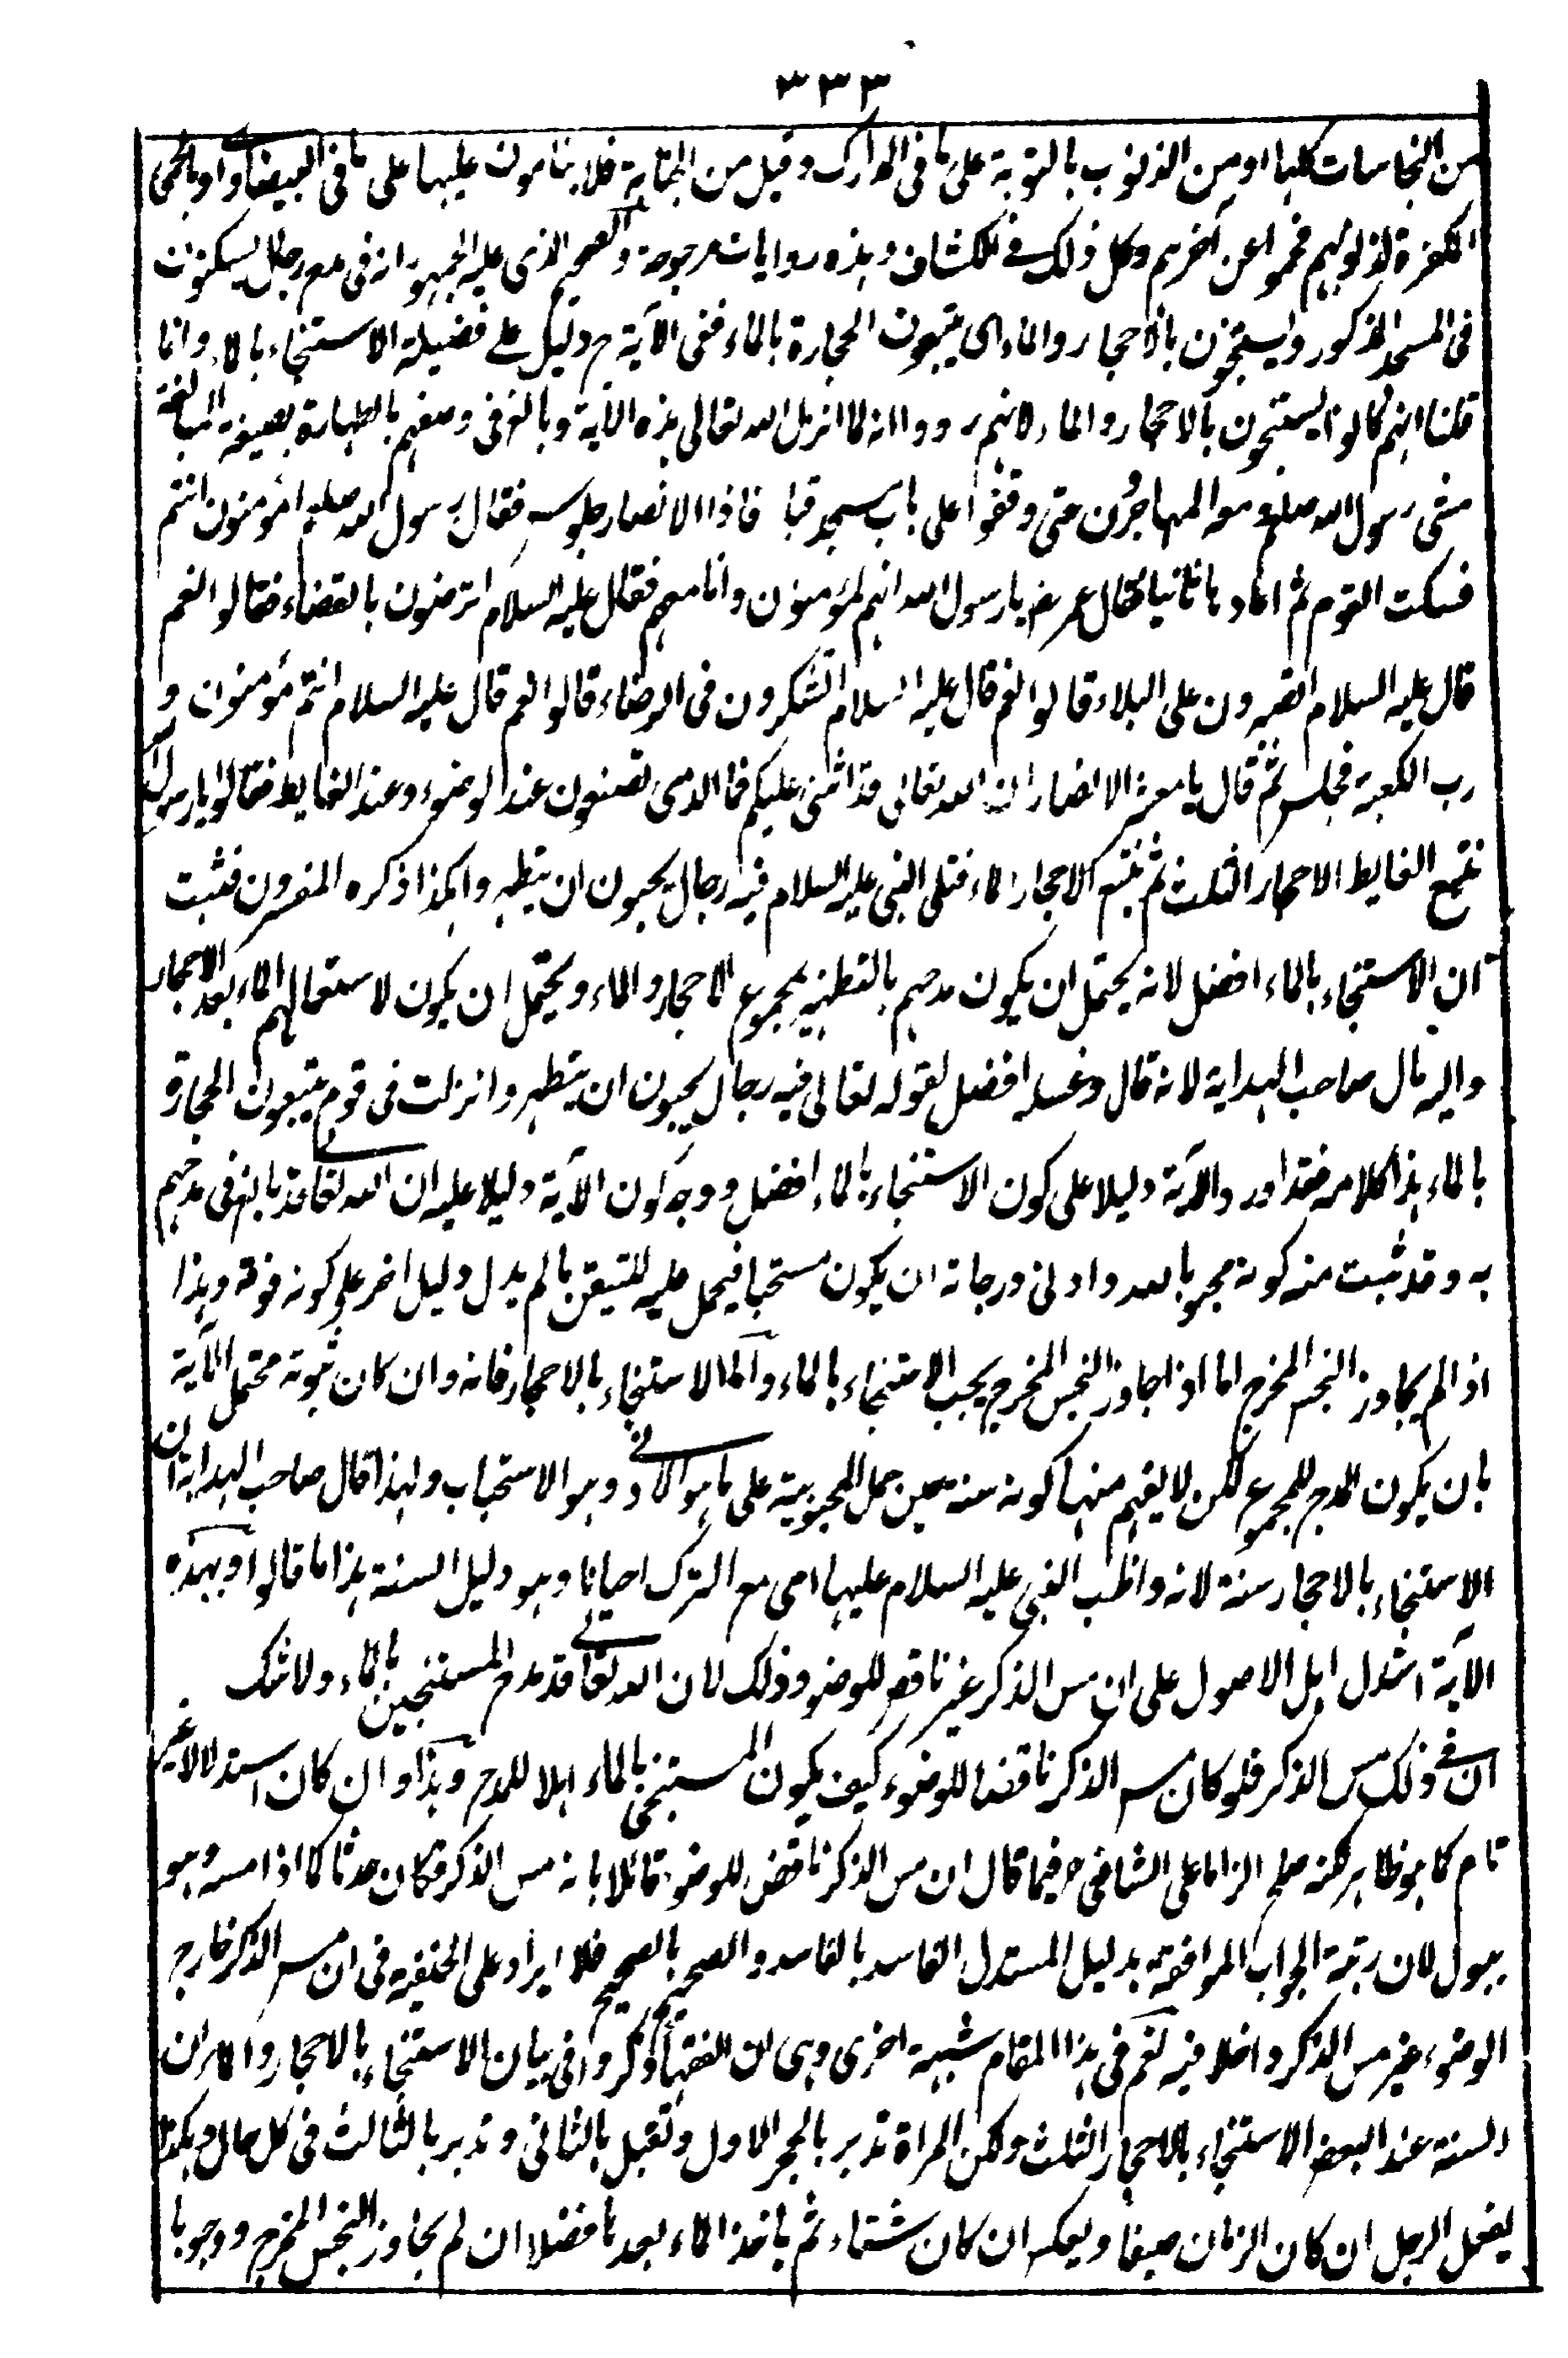 ٣٣٣
من النجاسات كلها او من الذنوب بالتوبة على ما فى المدارك وقيل من الجنابة فلا ينامون عليها على ما فى البيضاوى او بالحمى
المكفرة لذنوبهم فحموا عن آخرهم وكل ذلك فى الكشاف وهذه روايات مرجوحة والصحيح الذى عليه الجمهور انه فى مدح رجال يسكنون
فى المسجد المذكور ويستنجون بالاحجار والماء اى يتبعون الحجارة بالماء ففى الآية ح دليل على فضيلة الاستنجاء بالماء وانما
قلنا انهم كانوا يستنجون بالاحجار والماء لانهم رووا انه لما انزل الله تعالى هذه الآية وبالغ فى وصفهم بالطهارة بصيغة المبالغة
مشى رسول الله صلعم معه المهاجرون حتى وقفوا على باب مسجد قبا فاذا الانصار جلوس فقال رسول الله صلعم امؤمنون انتم
فسكت القوم ثم اعادها ثانيا فقال عمر رض يا رسول الله انهم لمؤمنون وانا معهم فقال عليه السلام اترضون بالقضاء فقالوا نعم
قال عليه السلام اتصبرون على البلاء قالوا نعم قال عليه السلام اتشكرون فى الرخاء قالوا نعم قال عليه السلام انتم مؤمنون و
رب الكعبة فجلس ثم قال يا معشر الانصار ان الله تعالى قد اثنى عليكم فما الذى تصنعون عند الوضوء وعند الغايط فقالوا يا رسول الله
نتبع الغايط الاحجار الثلث ثم نتبع الاحجار الماء فتلى النبى عليه السلام فيه رجال يحبون ان يتطهروا هكذا ذكره المفسرون فثبت
ان الاستنجاء بالماء افضل لانه يحتمل ان يكون مدحهم بالتطهير بمجموع الاحجار والماء ويحتمل ان يكون لاستعمالهم الماء بعد الاحجار
واليه مال صاحب الهداية لانه قال وغسله افضل لقوله تعالى فيه رجال يحبون ان يتطهروا نزلت فى قوم يتبعون الحجارة
بالماء هذا كلامه فقد اورد الآية دليلا على كون الاستنجاء بالماء افضل ووجه كون الآية دليلا عليه ان الله تعالى قد بالغ فى مدحهم
به وقد ثبت منه كونه محبوبا لله وادنى درجاته ان يكون مستحبا فيحمل عليه للتيقن ما لم يدل دليل اخر على كونه فوقه وهذا
اذا لم يجاوز النجس المخرج اما اذا جاوز النجس المخرج يجب الاستنجاء بالماء واما الاستنجاء بالاحجار فانه وان كان ثبوته محتمل الآية
بان يكون المدح للمجموع لكن لا يفهم منها كونه سنة حين حمل المحبوبية على ما هو الادنى وهو الاستحباب ولهذا قال صاحب الهداية ان
الاستنجاء بالاحجار سنة لانه واظب النبى عليه السلام عليها اى مع الترك احيانا وهو دليل السنة هذا ما قالوا وبهذه
الآية استدل اهل الاصول على ان مس الذكر غير ناقض للوضوء وذلك لان الله تعالى قد مدح المستنجين بالماء ولا شك
ان فى ذلك مس الذكر فلو كان مس الذكر ناقضا للوضوء كيف يكون المستنجى بالماء اهلا للمدح وهذا وان كان استدلالا غير
تام كما هو ظاهر لكنه صلح الزاما على الشافعى رح فيما قال ان مس الذكر ناقض للوضوء قائلا بانه مس الذكر فكان حدثا كما اذا مسه وهو
يبول لان رتبة الجواب الموافقة بدليل المستدل الفاسد بالفاسد والصحيح بالصحيح فلا ايراد على الحنفية فى ان مس الذكر خارج
الوضوء غير مس الذكر داخلا فيه نعم فى هذا المقام شبهة اخرى وهى ان الفقهاء ذكروا فى بيان الاستنجاء بالاحجار والامران
السنة عند البعض الاستنجاء بالاحجار الثلث ولكن المراة تدبر بالحجر الاول وتقبل بالثانى وتدبر بالثالث فى كل حال وهكذا
يفعل الرجل ان كان الزمان صيفا وبعكس ان كان شتاء ثم ياخذ الماء بعدها فضلا ان لم يجاوز النجس المخرج ووجوبا